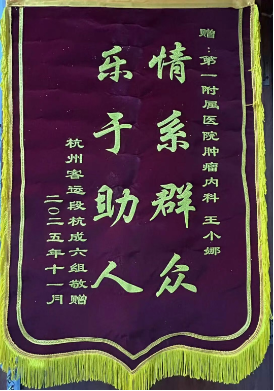 赠：第一附属医院肿瘤内科 王小娜
情系群众
乐于助人
杭州客运段杭成六组敬赠
二〇二五年十一月